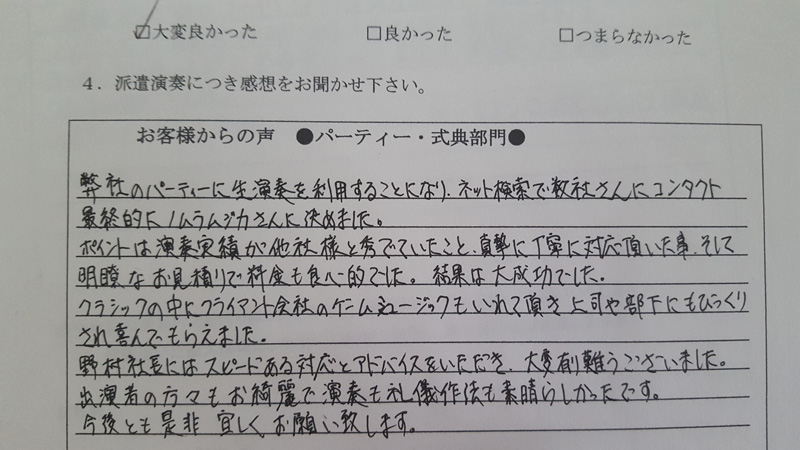 ☑大変良かった □良かった □つまらなかった
４．派遣演奏につき感想をお聞かせ下さい。
お客様からの声 ●パーティー・式典部門●
弊社のパーティーに生演奏を利用することになり、ネット検索で数社さんにコンタクト
最終的にノムラムジカさんに決めました。
ポイントは演奏実績が他社様と秀でていたこと、真摯に丁寧に対応頂いた事、そして
明瞭なお見積りで料金も良心的でした。結果は大成功でした。
クラシックの中にクライアント会社のゲームミュージックもいれて頂き上司や部下にもびっくり
され喜んでもらえました。
野村社長にはスピードある対応とアドバイスをいただき、大変有難うございました。
出演者の方々もお綺麗で演奏も礼儀作法も素晴らしかったです。
今後とも是非宜しくお願い致します。